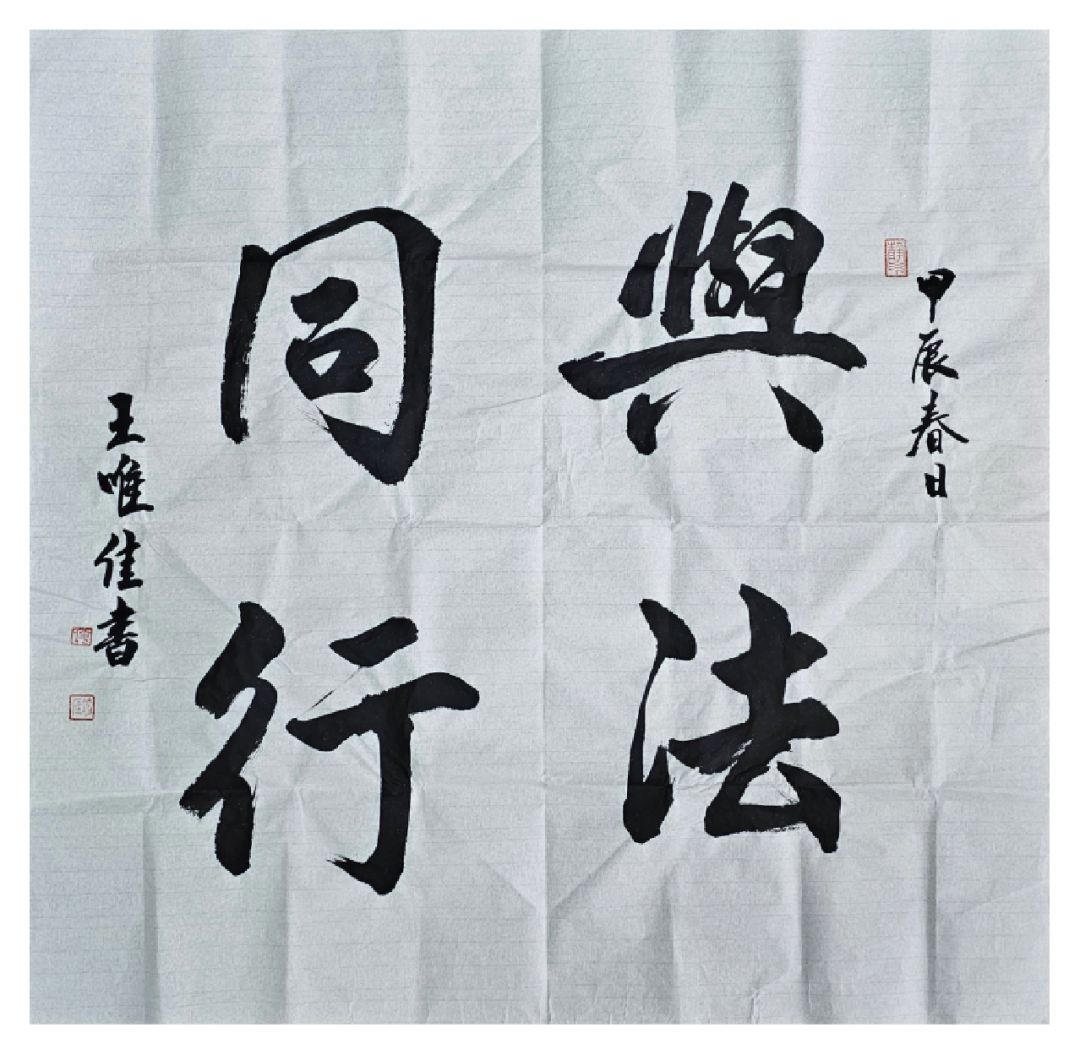 甲辰春日
與法
同行
王唯佳書